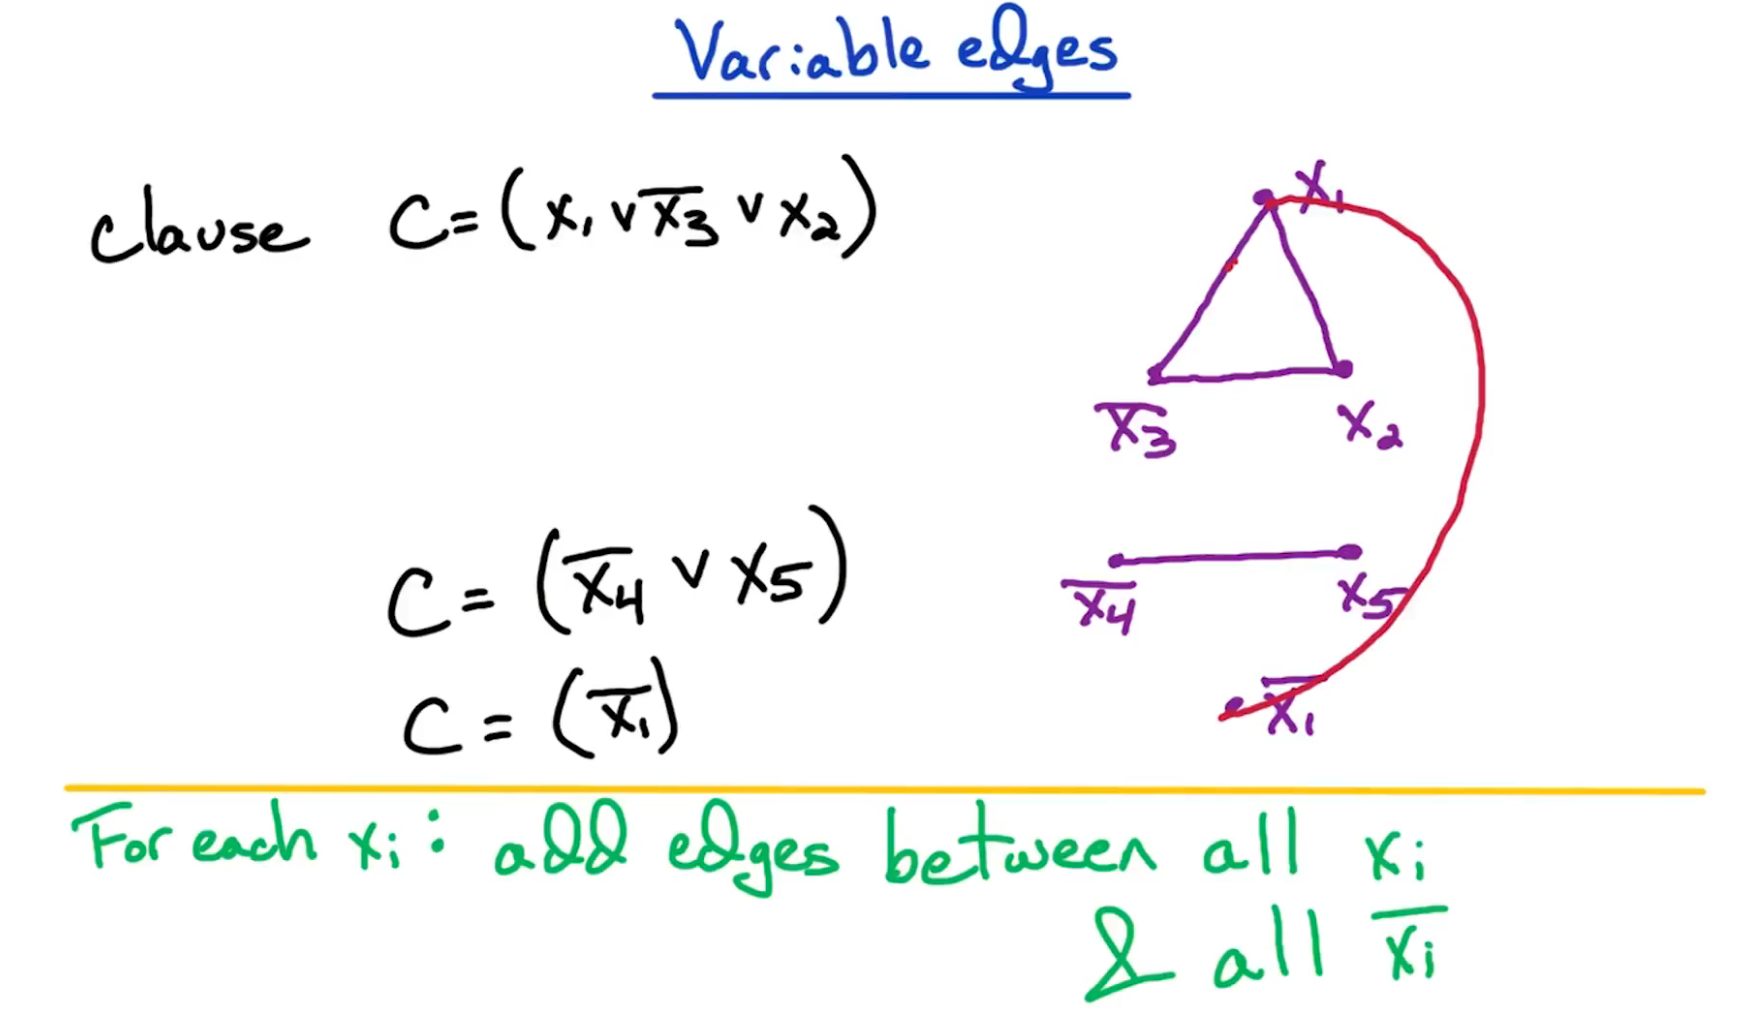 Variable edges
clause C = (x₁ ∨ x̅₃ ∨ x₂)
x₁
x̅₃ x₂
C = (x̅₄ ∨ x₅)
x̅₄ x₅
C = (x̅₁)
x̅₁
For each xᵢ: add edges between all xᵢ
& all x̅ᵢ